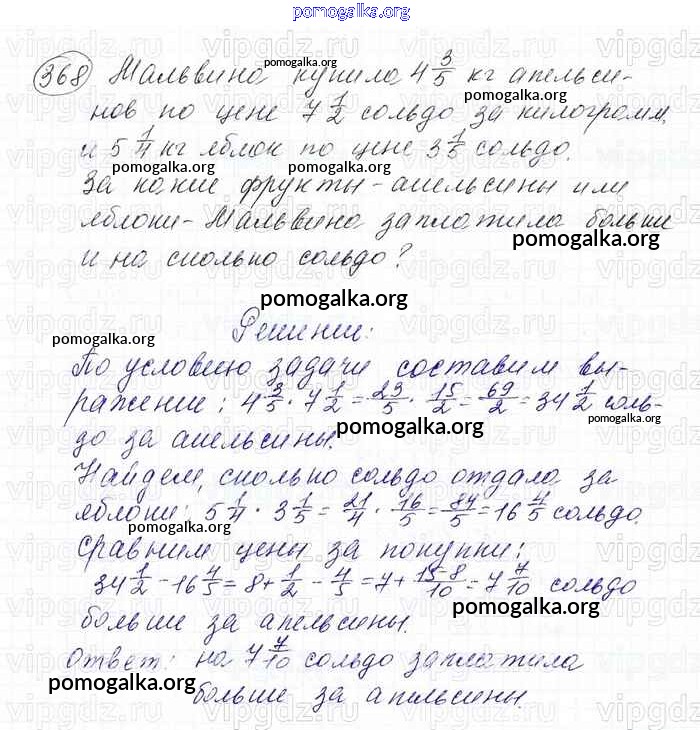 pomogalka.org
368 Мальвина купила 4 3/5 кг апельси-
нов по цене 7 1/2 сольдо за килограмм,
и 5 1/4 кг яблок по цене 3 1/5 сольдо.
За какие фрукты - апельсины или
яблоки - Мальвина заплатила больше
и на сколько сольдо?
Решение:
По условию задачи составим вы-
ражение: 4 3/5 · 7 1/2 = 23/5 · 15/2 = 69/2 = 34 1/2 соль-
до за апельсины.
Найдем, сколько сольдо отдала за
яблоки: 5 1/4 · 3 1/5 = 21/4 · 16/5 = 84/5 = 16 4/5 сольдо.
Сравним цены за покупки:
34 1/2 - 16 4/5 = 8 + 1/2 - 4/5 = 7 + 15-8/10 = 7 7/10 сольдо
больше за апельсины.
Ответ: на 7 7/10 сольдо заплатила
больше за апельсины.